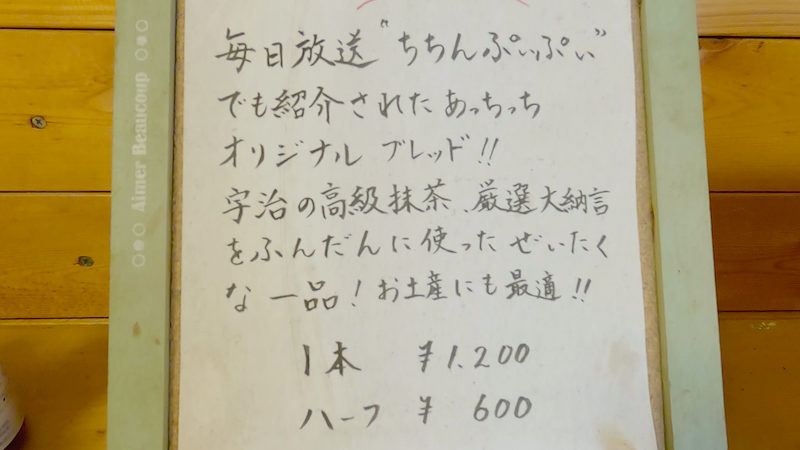 毎日放送 "ちちんぷいぷい"
でも紹介されたあっちっち
オリジナル ブレッド!!
宇治の高級抹茶、厳選大納言
をふんだんに使ったぜいたく
な一品!お土産にも最適!!
1本 ¥1.200
ハーフ ¥ 600
Aimer Beaucoup